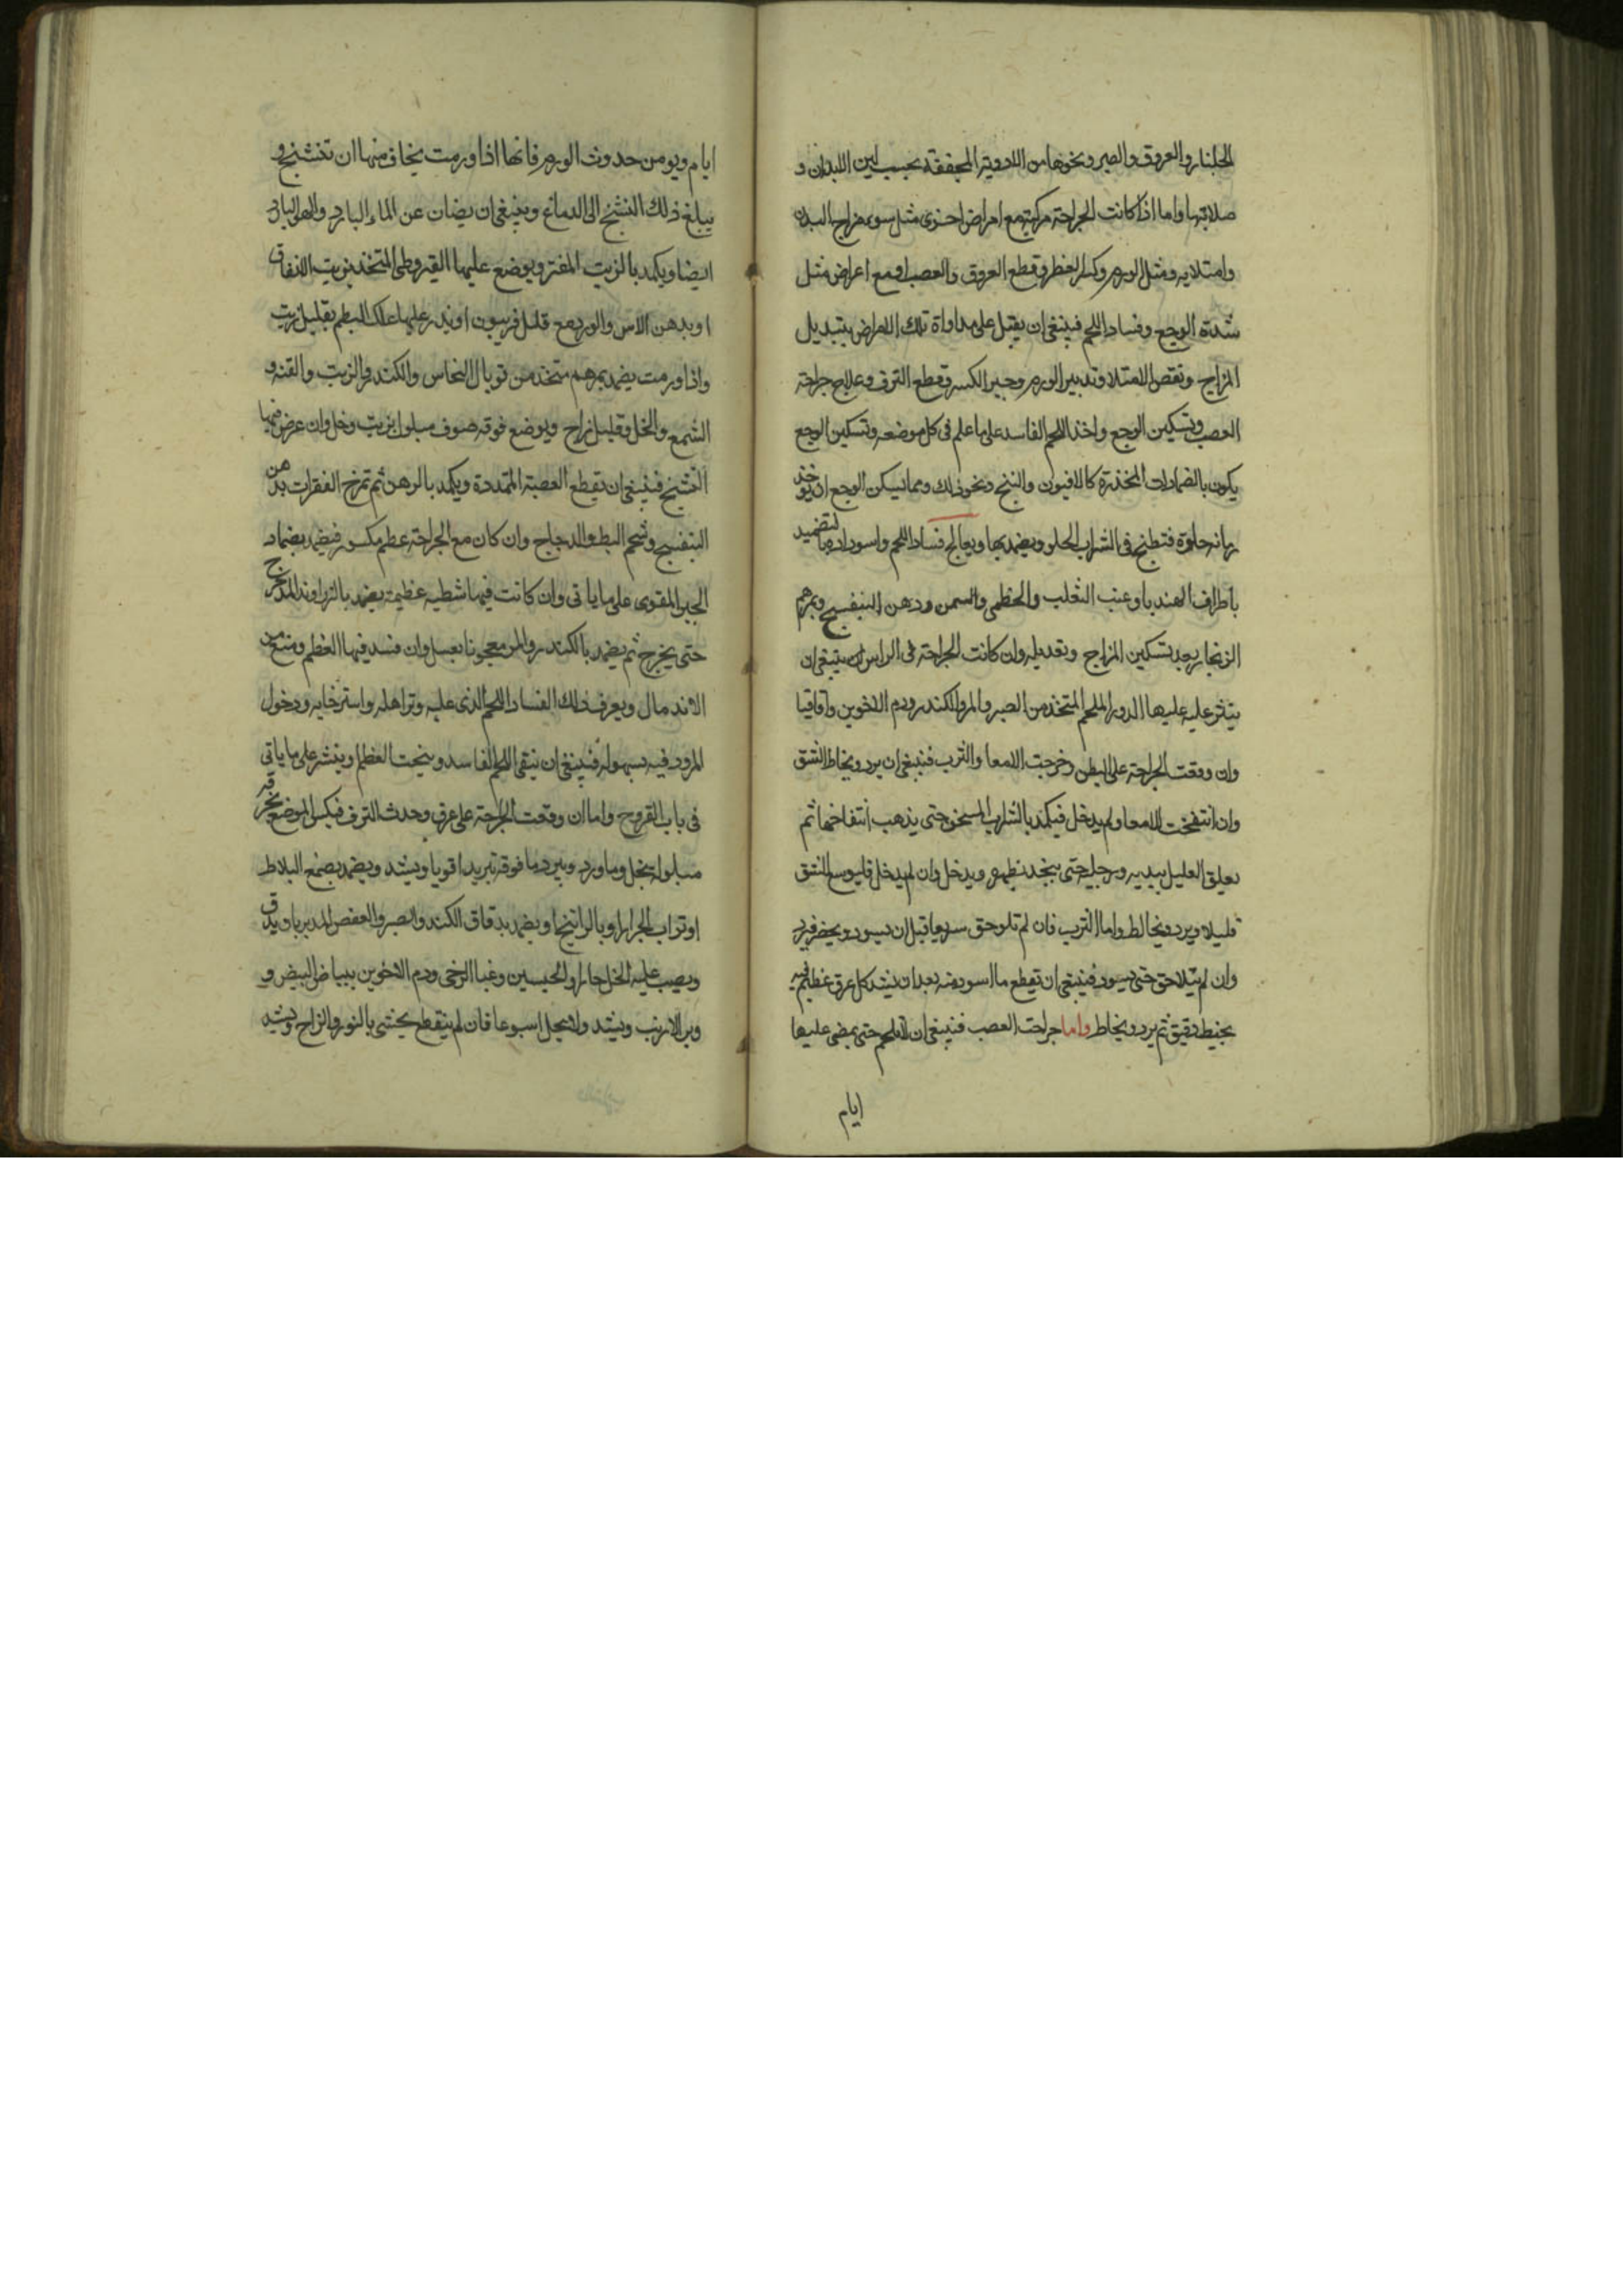 الجلنار والعروق والصبر ونحوها من الادوية المجففة بحسب لين الابدان و
صلابتها واما اذا كانت الجراحة مركبة مع امراض اخرى مثل سوء مزاج البدن
وامتلايه ومثل الورم وكسر العظم وقطع العروق والعصب او مع اعراض مثل
شدة الوجع وفساد اللحم فينبغي ان يقبل على مداواة تلك الامراض بتبديل
المزاج ونقص الامتلا وتدبير الورم وجبر الكسر وقطع النزف وعلاج جراحة
العصب وتسكين الوجع واخذ اللحم الفاسد على ما علم في كل موضعه وتسكين الوجع
يكون بالضمادات المخدرة كالافيون والبنج ونحو ذلك ومما يسكن الوجع ان يوخذ
رمانه حلوة فتطبخ في الشراب الحلو ويضمد بها ويعالج فساد اللحم واسودادها بالتضميد
باطراف الهندبا وعنب الثعلب والخطمي والسمن ودهن البنفسج وبمرهم
الزنجار بعد تسكين المزاج وتعديله وان كانت الجراحة في الراس ينبغي ان
ينثر عليه عليها الدرور الملحم المتخذ من الصبر والمر والكندر ودم الاخوين واقاقيا
وان وقعت الجراحة على البطن وخرجت الامعا والثرب فينبغي ان يرد ويخاط الشق
وان انتفخت الامعا ولم يدخل فيكمد بالشراب المسخن حتى يذهب انتفاخها ثم
يعلق العليل بيديه ورجليه حتى ينجد بظهره ويدخل وان لم يدخل فليوسع الشق
قليلا ويرد ويخاط واما الثرب فان لم تلوحق سريعا قبل ان يسود ويخضر فيرد
وان لم يتلاحق حتى يسود فينبغي ان تقطع ما اسود منه بعد ان يشد كل عرق عظيم فيه
بخيط دقيق ثم يرد ويخاط واما جراحت العصب فينبغي ان لا يلحم حتى يمضي عليها
ايام
ايام ويومن حدوث الورم فانها اذا ورمت يخاف منها ان تتشنج و
يبلغ ذلك التشنج الى الدماغ وينبغي ان يصان عن الماء البارد والهوا البارد
ايضا ويكمد بالزيت المفتر ويوضع عليها القيروطي المتخذ بزيت الانفاق
او بدهن الاس والورد مع قليل فربيون او يذر عليها علك البطم بقليل زيت
واذا ورمت يضمد بمرهم متخذ من توبال النحاس والكندر والزيت والقنه و
الشمع والخل وقليل زاج ويوضع فوقه صوف مبلول بزيت وخل وان عرض فيها
التشنج فينبغي ان تقطع العصبة المتمددة ويكمد بالدهن ثم تمرخ الفقرات بدهن
البنفسج وشحم البط والدجاج وان كان مع الجراحة عظم مكسور فيضمد بضماد
الجبر المقوى على ما ياتى وان كانت فيها شظيه عظيمة يضمد بالزراوند المدحرج
حتى يخرج ثم يضمد بالكندر والمر معجونا بعسل وان فسد فيها العظم ومنع من
الاندمال ويعرف ذلك الفساد اللحم الذى عليه وترهله واسترخايه ودخول
المرود فيه بسهولة فينبغي ان ينقى اللحم الفاسد وينحت العظم وينشر على ما ياتى
في باب القروح واما ان وقعت الجراحة على عرق وحدث النزف فيكبس الموضع بخرقه
مبلولة بخل وماورد ويبرد ما فوقه تبريدا قويا ويشد ويضمد بصمغ البلاط
او تراب الجرار او بالراتينج او يضمد بدقاق الكندر والصبر والعفص المدبر بان يدق
ويصب عليه الخل حارا والجبسين وغبا الرحى ودم الاخوين ببياض البيض و
وبر الارنب ويشد ولا يحل اسبوعا فان لم ينقطع يحشى بالنوره والزاج ويشد